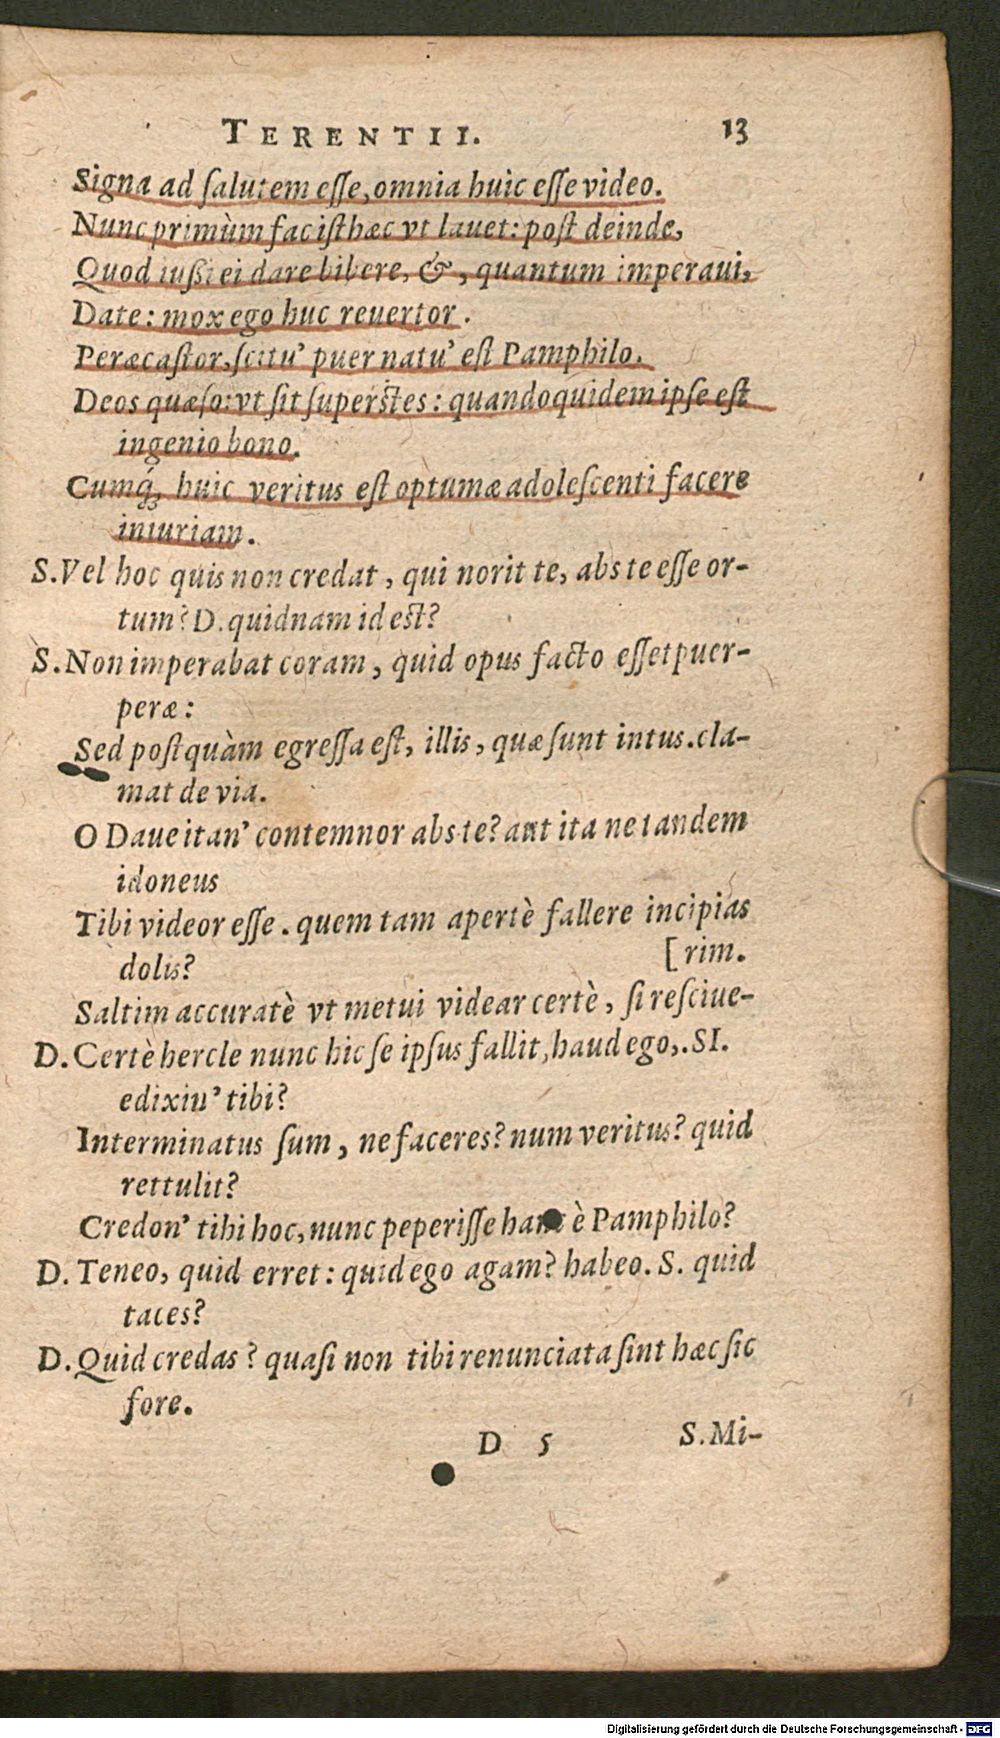 TERENTII. 13
Signa ad ſalutem eſſe, omnia huic eſſe video.
Nunc primùm fac iſthæc vt lauet: poſt deinde,
Quod iußi ei dare bibere, &, quantum imperaui,
Date: mox ego huc reuertor.
Peræcaſtor, ſcitu' puer natu' eſt Pamphilo.
Deos quæſo: vt ſit ſuperſtes: quandoquidem ipſe eſt
ingenio bono.
Cumq́;, huic veritus eſt optumæ adoleſcenti facere
iniuriam.
S. Vel hoc quis non credat, qui norit te, abs te eſſe or-
tum? D. quidnam id eſt?
S. Non imperabat coram, quid opus facto eſſet puer-
peræ:
Sed poſtquàm egreſſa eſt, illis, quæ ſunt intus. cla-
mat de via.
O Daue itan' contemnor abs te? aut ita ne tandem
idoneus
Tibi videor eſſe. quem tam apertè fallere incipias
dolis? [rim.
Saltim accuratè vt metui videar certè, ſi reſciue-
D. Certè hercle nunc hic ſe ipſus fallit, haud ego,. SI.
edixin' tibi?
Interminatus ſum, ne faceres? num veritus? quid
rettulit?
Credon' tibi hoc, nunc peperiſſe hanc è Pamphilo?
D. Teneo, quid erret: quid ego agam? habeo. S. quid
taces?
D. Quid credas? quaſi non tibi renunciata ſint hæc ſic
fore.
D 5 S. Mi-
Digitalisierung gefördert durch die Deutsche Forschungsgemeinschaft - DFG